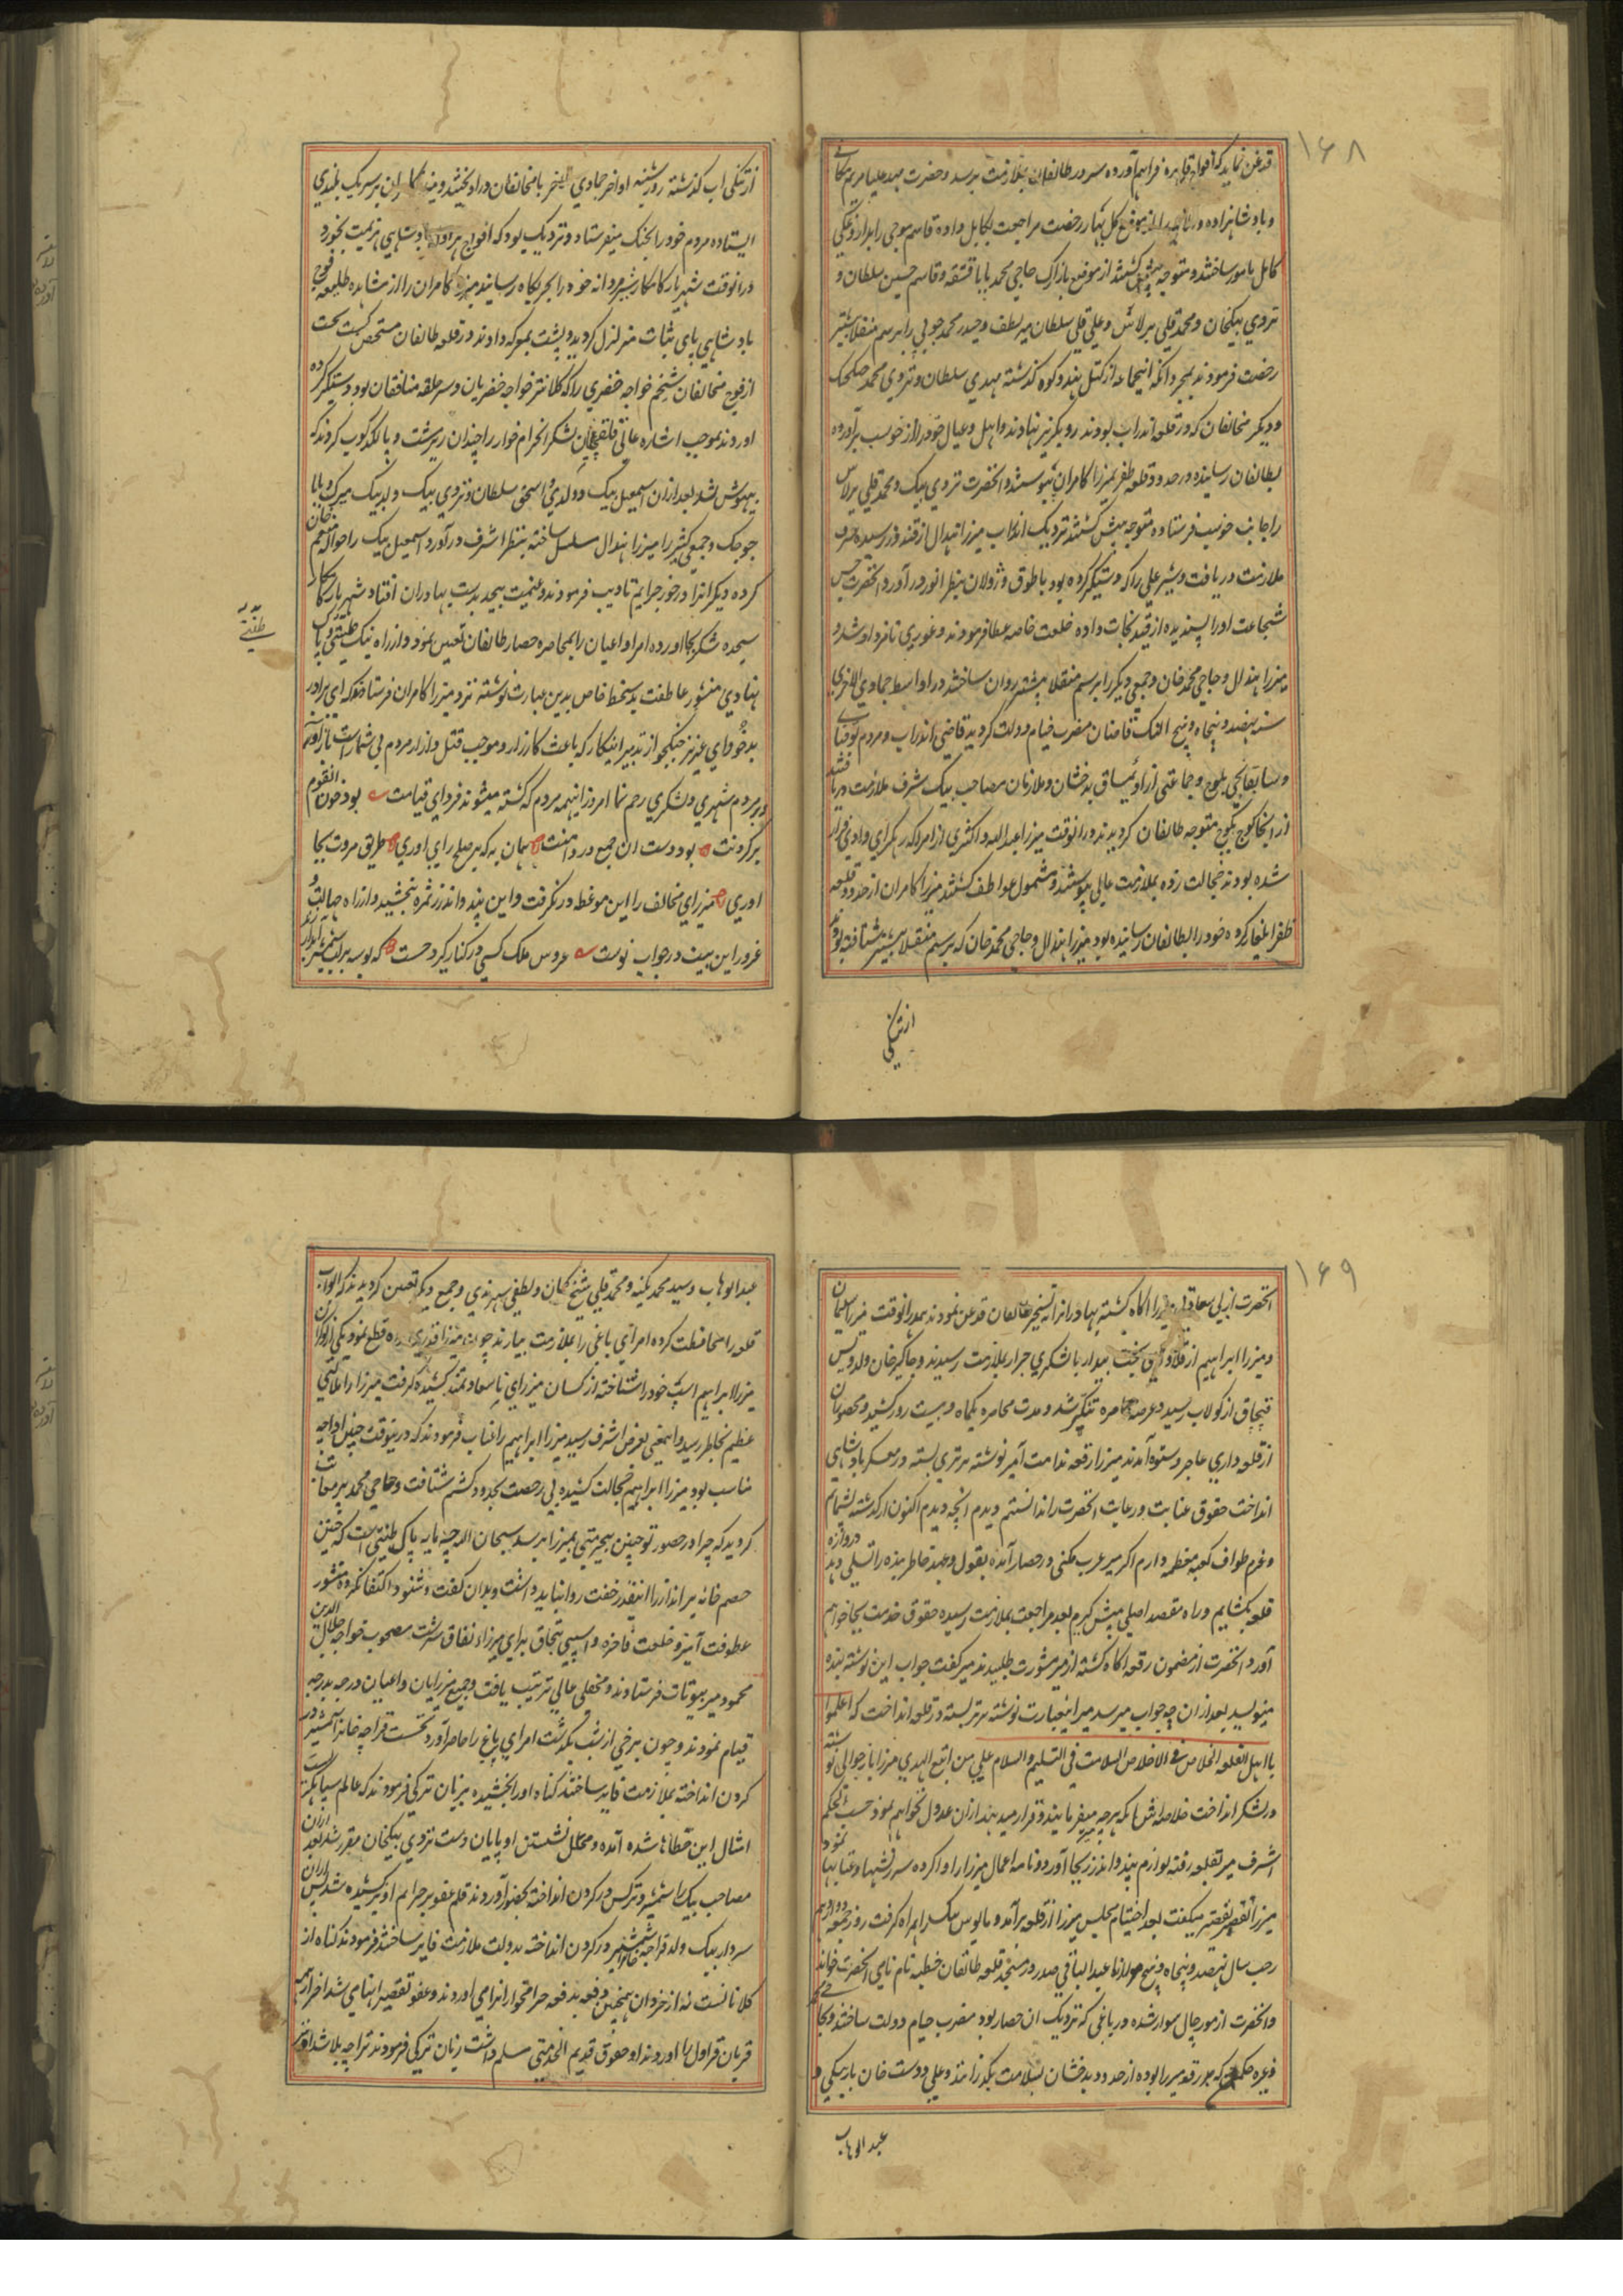 ۱۶۸
قدغن نماید که افواج قاهره فراهم آورده سر در طالقان بملازمت برسد و حضرت مهد علیا مریم مکانی
و پادشاهزاده و را از موضع کل بهار رخصت مراجعت بکابل داده قاسم موجی را بداروغگی
کابل مامور ساختند و متوجه پیش کشتند از موضع بازارک حاجی محمد بابا قشقه و قاسم حسین سلطان و
تردی بیکخان و محمد قلی برلاس و علی قلی سلطان میر لطف و حیدر محمد جوبی را برسم منقلا پیشتر
رخصت فرمودند بمجرد انکه انجماعه از کتل هندوکوه کذشته مهدی سلطان و تردی محمد جنکجنک
و دیکر مخالفان که در قلعه اندراب بودند رو بکریز نهادند و اهل و عیال خود را از خوست برآورده
بطالقان رسانیده در حدود قلعه ظفر بمیرزا کامران پیوستند و انحضرت تردی بیک و محمد قلی برلاس
را جانب خوست فرستاده متوجه پیش کشتند نزدیک انداب میرزا هندال از قندوز رسیده شرف
ملازمت دریافت و شیر علی را که دستکیر کرده بود با طوق و زولان بنظر انور در آورد انحضرت حسن
شجاعت او را پسندیده از قید نجات داده خلعت خاصه عطا فرمودند و غوری نامزد او شد و
میرزا هندال و حاجی محمد خان و جمعی دیکر را برسم منقلا پیشتر روان ساختند در اواسط جمادی الاخری
سنه نهصد و پنجاه و پنج النک قاضان مضرب خیام دولت کردید قاضی اندراب و مردم توقبای
و سایقانجی بلوج و جماعتی از اویماق بدخشان و ملازمان مصاحب بیک شرف ملازمت دریافتند
از انجا کوج بکوج متوجه طالقان کردیدند در انوقت میرزا عبدالله و اکثری از امرا که رهکرای وادی فرار
شده بودند خجالت زده بملازمت عالی پیوستند و مشمول عواطف کشتند میرزا کامران از حدود قلعه
ظفر ایلغار کرده خود را بطالقان رسانیده بود میرزا هندال و حاجی محمد خان که برسم منقلا پیشتر شتافته بودند
از تنکی
از تنکی اب کذشته روز شنبه اواخر جمادی الاخر با مخالفان دراویختند و میرزا کامران بر سر یک بلندی
ایستاده مردم خود را بجنک میفرستاد و نزدیک بود که افواج هراول پادشاهی هزیمت بخورد
در انوقت شهریار کامکار شیردلانه خود را بجربکاه رسانید میرزا کامران را از مشاهده طلیعه فوج
پادشاهی پای ثبات متزلزل کردیده پشت بمعرکه داوند در قلعه طالقان متحصن کشت بحت
از فوج مخالفان شیخم خواجه خضری را که کلانتر خواجه خضریان و سر حلقه منافقان بود دستکیر کرده
اوردند بموجب اشاره عالی قلقچیان لشکر انحرام خوار را چندان زیر مشت و پا لکدکوب کردند که
بیهوش شد بعد از ان اسمعیل بیک دولدی و اسحق سلطان و تردی بیک ولد بیک میرک و بابا
جوجک و جمعی کثیر را میرزا هندال مسلسل ساخته بنظر اشرف در آورد اسمعیل بیک را حواله منعم خان
کرده دیکرانرا در خور جرایم تادیب فرمودند و غنیمت بیحد بدست بهادران افتاد شهریار کامکار
سجده شکر بجا اورده امرا و اعیان را بمحاصره حصار طالقان تعین نمود و از راه نیک طینتی و پاک
نهادی منشور عاطفت بدستخط خاص بدین عبارت نوشته نزد میرزا کامران فرستاد که ای برادر
بدخو و ای عزیز جنکجو از تدبیر اینکار که باعث کارزار و موجب قتل و ازار مردم بی شمار است باز آور
و بر مردم شهری و لشکری رحم نما امروز اینهمه مردم که کشته میشوند فردای قیامت بود خون انقوم
در کردنت بود دست ان جمع در دامنت همان به که بر صلح رای اوری طریق مروت بجا
اوری میرزای مخالف را این موعظه در نکرفت و این پند و اندرز ثمره نبخشید و از راه جهالت و
غرور این بیت در جواب نوشت عروس ملک کسی در کنار کیرد جست که بوسه بر لب شمشیر ابدار زند
۱۶۹
انحضرت از بی سعادتی میرزا اکاه کشته بهادرانرا بتسخیر طالقان قدغن نمودند بعد در انوقت میرزا سلیمان
و میرزا ابراهیم از قلاوزی بخت بیدار با لشکری جرار بملازمت رسیدند و چاکر خان ولد ویس
قبچاق از کولاب رسید و عرصه محاصره تنکتر شد و مدت محاصره یکماه و بیست روز کشید و محصوران
از قلعه داری عاجز و ستوه آمدند میرزا رقعه ندامت آمیز نوشته بر تری بسته در معسکر پادشاهی
انداخت حقوق عنایت و رعایت انحضرت را ندانستم دیدم انچه دیدم اکنون از کذشته پشیمانم
و عزم طواف کعبه معظمه دارم اکر میر عرب مکی در حصار آمده بقول و عهد خاطر بنده را تسلی دهد دروازه
قلعه بکشایم و راه مقصد اصلی پیش کیرم بعد مراجعت بملازمت رسیده حقوق خدمت بجا خواهم
آورد انحضرت از مضمون رقعه اکاه کشته از میر مشورت طلبیدند میر کفت جواب این نوشته بنده
مینویسد بعد از ان چه جواب میرسد میر اینعبارت نوشته بر تیر بسته در قلعه انداخت که اعلموا
یا اهل القلعه الخلاص فی الاخلاص السلامت فی التسلیم والسلام علی من اتبع الهدی میرزا باز جوابی نوشته
در لشکر انداخت خلاصه اش که هر چه میر فرمایند و قرار میدهند ازان عدول نخواهم نمود حسب الحکم
اشرف میر بقلعه رفته لوازم پند و اندرز بجا آورد و نامه اعمال میرزا را وا کرده سرزنشها و عتابها نمود
میرزا تقصیر تقصیر میکفت بعد اختتام مجلس میرزا از قلعه برآمد و مایوس میر را همراه کرفت روز جمعه دوازدهم
رجب سال نهصد و پنجاه و پنج مولانا عبدالباقی صدر در مسجد قلعه طالقان خطبه بنام نامی انحضرت خواند
و انحضرت از مورچال سوار شده در باغی که نزدیک ان حصار بود مضرب خیام دولت ساختند و حاجی محمد
و غیره حکم که میرزا بوده از حدود بدخشان بسلامت بکذرانند و علی دوست خان باربیکی و
عبدالوهاب
عبدالوهاب و سید محمد پکنه و محمد قلی شیخ کمان و لطفی سهرندی و جمع دیکر تعین کردیدند که ابواب
قلعه را محافظت کرده امرای باغی را بملازمت بیارند چون میرزا قدری راه قطع نمود یکی از نوکران
میرزا ابراهیم اسپ خود را شناخته از کسان میرزای ناسعادتمند کشیده کرفت میرزا را ملالتی
عظیم بخاطر رسید و اینمعنی بعرض اشرف رسید میرزا ابراهیم را عتاب فرمودند که درینوقت چنین اداها چه
مناسب بود میرزا ابراهیم خجالت کشیده بی رخصت بحدود کشم شتافت و حاجی محمد نیز معاتب
کردید که چرا در حضور تو چنین بیحرمتی بمیرزا برسد سبحان الله چه پایه پاک طینتی است که چنین
خصم خانه براندازرا اینقدر خفت روا نباید داشت و بدان کفت و شنود اکتفا نکرده منشور
عطوفت آمیز و خلعت فاخره و اسپی تیجاق برای میرزاء نفاق سرشت مصحوب خواجه جلال الدین
محمود میر بیوتات فرستادند و محفلی عالی ترتیب یافت و جمیع میرزایان و اعیان درجه بدرجه
قیام نمودند و چون برخی از شب بکذشت امرای باغی را حاضر آوردند نخست قراچه خانرا شمشیر در
کردن انداخته بملازمت فایز ساختند کناه او را بخشیده بزبان ترکی فرمودند که عالم سپاهکری است
امثال این خطاها شده آمده و محل نشستن او پایان دست تردی بیکخان مقرر شد بعد ازان
مصاحب بیک را شمشیر و ترکس در کردن انداخته بحضور آوردند قلم عفو بر جرایم او نیز کشیده شد پس ازان
سردار بیک ولد قراچه خان را شمشیر در کردن انداخته بدولت ملازمت فایز ساختند فرمودند کناه از
کلانانست نه از خردان همچنین دفعه بدفعه حرامخوارانرا می اوردند و عفو تقصیر اینها می شد اخر از همه
قربان قراول را اوردند او حقوق قدیم الخدمتی مسلم داشت بزبان ترکی فرمودند ترا چه بلا شد او نیز